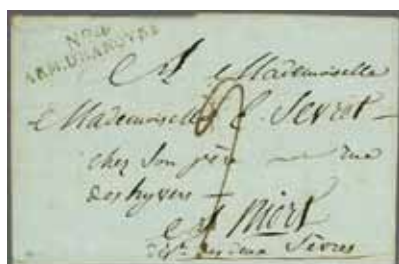 No. 6
ARM. D'HANOVRE
A Mademoiselle
Mademoiselle C. Sevrot
chez son père rue
des hyvers
A Niort
Dépt. des deux Sèvres